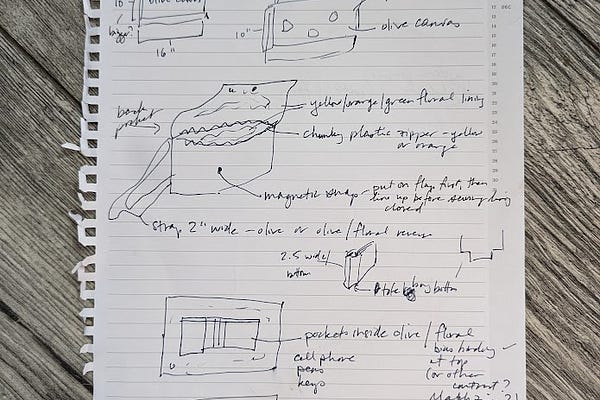 10"
olive canvas
bigger?
16"
10"
olive canvas
back
pocket
yellow/orange/green floral lining
chunky plastic zipper - yellow
or orange
magnetic snap - put on flap first, then
line up before securing lining
closed
strap 2" wide - olive or olive/floral reverse
2.5 wide/
bottom
tote bag bottom
pockets inside olive/floral
bias binding
at top
(or other
contrast?
cell phone
pens
keys